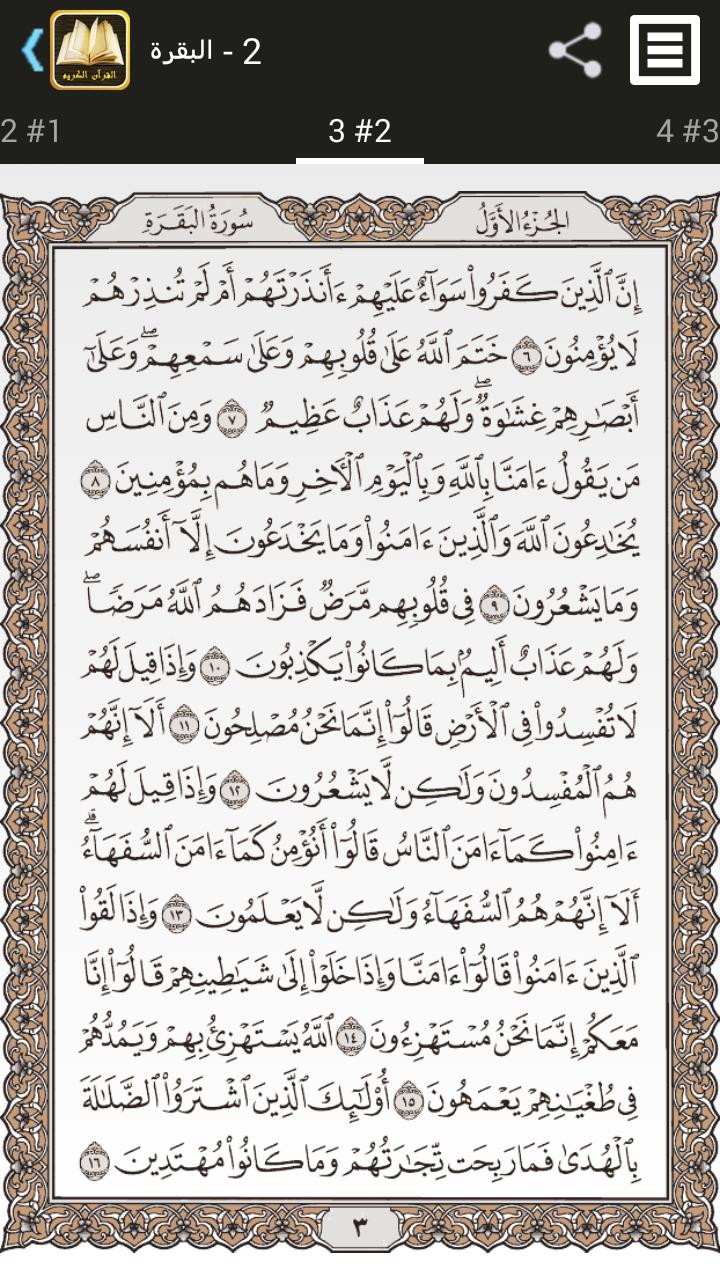 2 - البقرة
القرآن الكريم
2 #1
3 #2
4 #3
الجُزْءُ الأَوَّلُ
سُورَةُ البَقَرَةِ
إِنَّ ٱلَّذِينَ كَفَرُوا۟ سَوَآءٌ عَلَيْهِمْ ءَأَنذَرْتَهُمْ أَمْ لَمْ تُنذِرْهُمْ
لَا يُؤْمِنُونَ ٦ خَتَمَ ٱللَّهُ عَلَىٰ قُلُوبِهِمْ وَعَلَىٰ سَمْعِهِمْ ۖ وَعَلَىٰٓ
أَبْصَـٰرِهِمْ غِشَـٰوَةٌ ۖ وَلَهُمْ عَذَابٌ عَظِيمٌ ٧ وَمِنَ ٱلنَّاسِ
مَن يَقُولُ ءَامَنَّا بِٱللَّهِ وَبِٱلْيَوْمِ ٱلْـَٔاخِرِ وَمَا هُم بِمُؤْمِنِينَ ٨
يُخَـٰدِعُونَ ٱللَّهَ وَٱلَّذِينَ ءَامَنُوا۟ وَمَا يَخْدَعُونَ إِلَّآ أَنفُسَهُمْ
وَمَا يَشْعُرُونَ ٩ فِى قُلُوبِهِم مَّرَضٌ فَزَادَهُمُ ٱللَّهُ مَرَضًا ۖ
وَلَهُمْ عَذَابٌ أَلِيمٌۢ بِمَا كَانُوا۟ يَكْذِبُونَ ١٠ وَإِذَا قِيلَ لَهُمْ
لَا تُفْسِدُوا۟ فِى ٱلْأَرْضِ قَالُوٓا۟ إِنَّمَا نَحْنُ مُصْلِحُونَ ١١ أَلَآ إِنَّهُمْ
هُمُ ٱلْمُفْسِدُونَ وَلَـٰكِن لَّا يَشْعُرُونَ ١٢ وَإِذَا قِيلَ لَهُمْ
ءَامِنُوا۟ كَمَآ ءَامَنَ ٱلنَّاسُ قَالُوٓا۟ أَنُؤْمِنُ كَمَآ ءَامَنَ ٱلسُّفَهَآءُ ۗ
أَلَآ إِنَّهُمْ هُمُ ٱلسُّفَهَآءُ وَلَـٰكِن لَّا يَعْلَمُونَ ١٣ وَإِذَا لَقُوا۟
ٱلَّذِينَ ءَامَنُوا۟ قَالُوٓا۟ ءَامَنَّا وَإِذَا خَلَوْا۟ إِلَىٰ شَيَـٰطِينِهِمْ قَالُوٓا۟ إِنَّا
مَعَكُمْ إِنَّمَا نَحْنُ مُسْتَهْزِءُونَ ١٤ ٱللَّهُ يَسْتَهْزِئُ بِهِمْ وَيَمُدُّهُمْ
فِى طُغْيَـٰنِهِمْ يَعْمَهُونَ ١٥ أُو۟لَـٰٓئِكَ ٱلَّذِينَ ٱشْتَرَوُا۟ ٱلضَّلَـٰلَةَ
بِٱلْهُدَىٰ فَمَا رَبِحَت تِّجَـٰرَتُهُمْ وَمَا كَانُوا۟ مُهْتَدِينَ ١٦
٣